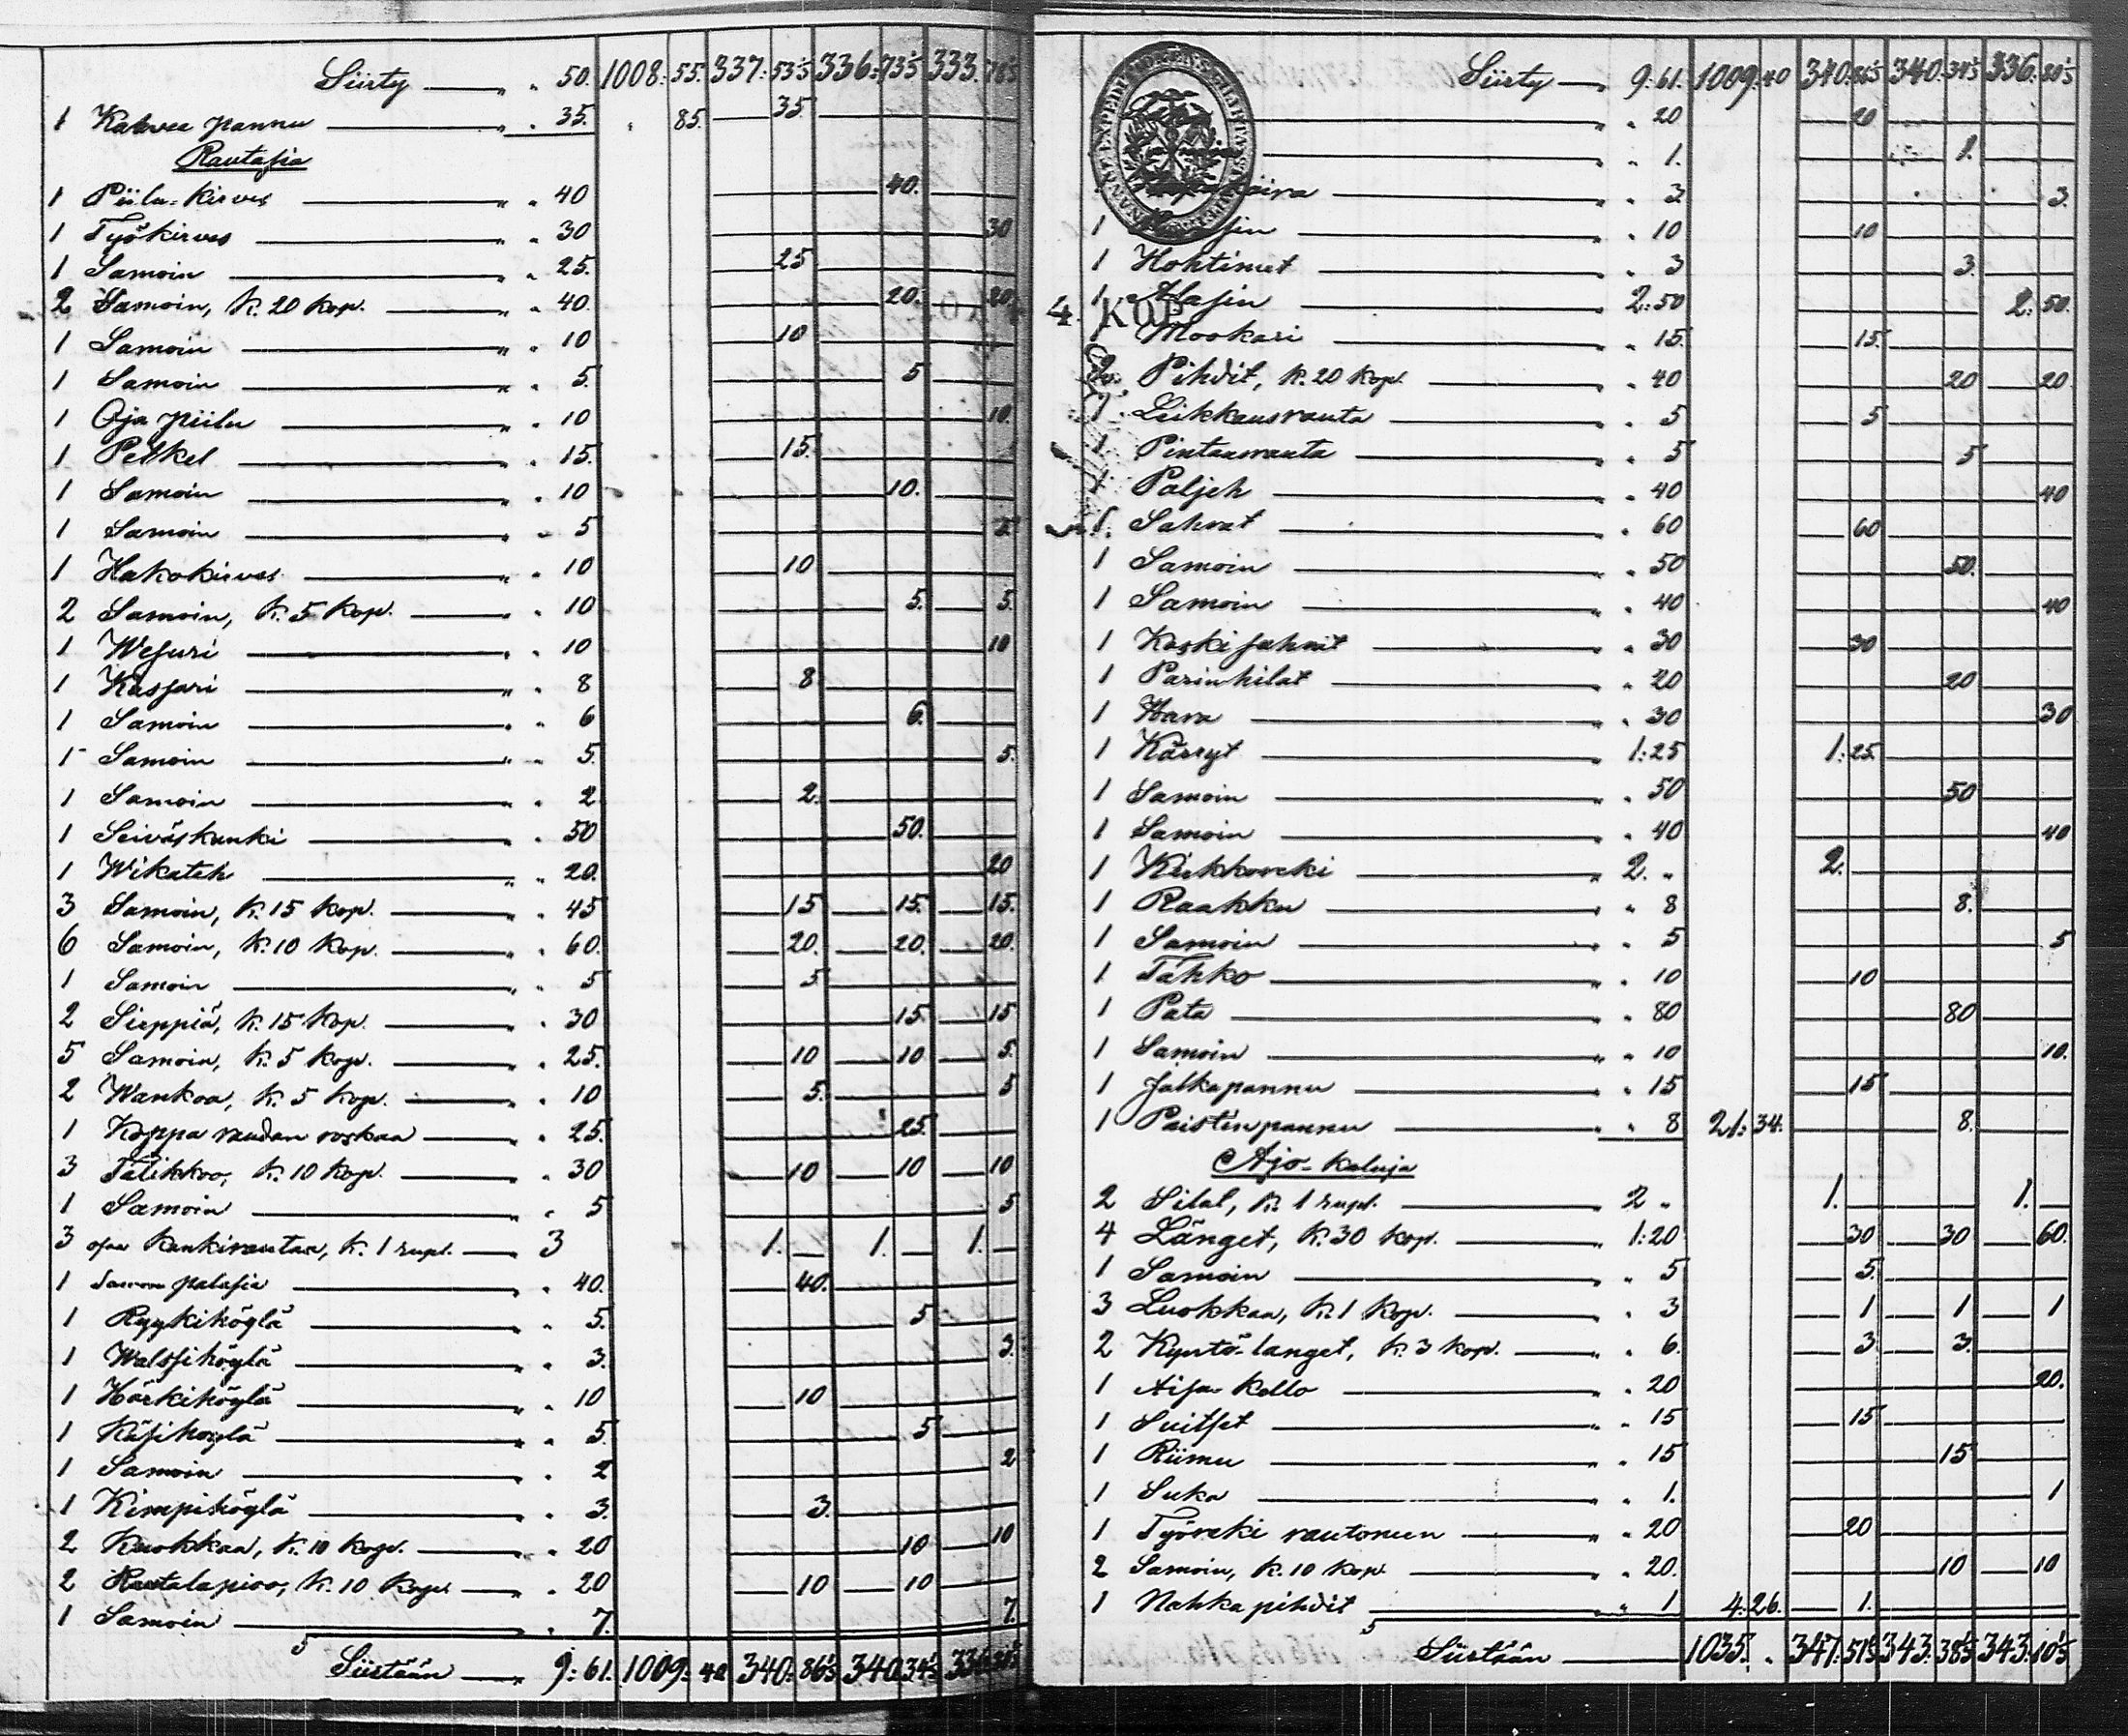 Siirty — " " 50. 1008: 55. 337: 53 1/5 336: 73 1/5 333. 78 1/5
1 Kahvea pannu — " " 35. " 85. — 35
Rautasia
1 Piilu-kirves — " " 40 — 40.
1 Työkirves — " " 30 — 30
1 Samoin — " " 25. — 25
2 Samoin, k. 20 kop. — " " 40. — 20. — 20
1 Samoin — " " 10 — 10
1 Samoin — " " 5. — 5
1 Oja piilu — " " 10 — 10.
1 Petkel — " " 15. — 15.
1 Samoin — " " 10 — 10.
1 Samoin — " " 5 — 5
1 Hakokirves — " " 10 — 10
2 Samoin, k. 5 kop. — " 10 — 5. — 5.
1 Wesuri — " " 10 — 10
1 Kassari — " " 8 — 8
1 Samoin — " " 6 — 6.
1 Samoin — " " 5. — 5.
1 Samoin — " " 2 — 2.
1 Seiväskanki — " " 50 — 50.
1 Wikateh — " " 20. — 20
3 Samoin, k. 15 kop. — " " 45 — 15 — 15. — 15.
6 Samoin, k. 10 kop. — " " 60. — 20. — 20. — 20.
1 Samoin — " " 5 — 5.
2 Sirppiä, k. 15 kop. — " 30 — 15. — 15
5 Samoin, k. 5 kop. — " " 25. — 10 — 10 — 5.
2 Wankoa, k. 5 kop. — " " 10 — 5. — 5
1 Koppa raudan roskaa — " " 25. — 25.
3 Talikkoo, k. 10 kop. — " " 30 — 10 — 10 — 10
1 Samoin — " " 5 — 5
3 Kankirautaa, k. 1 rupl. — 3 1. — 1. — 1. —
1 Samoin palasia — " " 40. — 40.
1 Ryykihöylä — " " 5. — 5
1 Walssihöylä — " " 3. — 3.
1 Härkihöylä — " " 10 — 10
1 Käsihöylä — " " 5. — 5
1 Samoin — " " 2 — 2
1 Kimpihöylä — " " 3. — 3.
2 Kuokkaa, k. 10 kop. — " 20 — 10 — 10
2 Rautalapioo, k. 10 kop. — " 20 — 10 — 10
1 Samoin — " " 7. — 7.
Siirtään — 9: 61. 1009: 40 340: 86 1/5 340. 34 1/5 336.
Siirty — 9: 61. 1009: 40 340: 86 1/5 340: 34 1/5 336: 80 1/5
— " " 20 — 20
— " " 1. — 1.
— " " 3 — 3.
1 — " " 10 — 10
1 Hohtimet — " " 3 — 3.
4. KOP.
1 Alasin — 2: 50 — 2: 50.
Mookari — " " 15. — 15.
2 Pihdit, k. 20 kop. — " " 40 — 20 — 20
1 Leikkausrauta — " " 5 — 5
1 Pintausrauta — " " 5 — 5
1 Paljeh — " " 40 — 40
1 Sahrat — " " 60 — 60
1 Samoin — " " 50 — 50.
1 Samoin — " " 40 — 40
1 Koskisahrat — " " 30 — 30
1 Parinhilat — " " 20 — 20
1 Hara — " " 30 — 30
1 Kärryt — 1: 25 1: 25.
1 Samoin — " " 50 — 50
1 Samoin — " " 40 — 40
1 Kirkkoreki — 2. " 2. —
1 Raakku — " " 8 — 8.
1 Samoin — " " 5 — 5
1 Tahko — " " 10 — 10
1 Pata — " " 80 — 80
1 Samoin — " " 10 — 10.
1 Jalkapannu — " " 15 — 15
1 Paistinpannu — " " 8 21: 34. — 8.
Ajo-kaluja
2 Silat, k. 1 rupl. — 2 " 1. — 1. —
4 Länget, k. 30 kop. — 1: 20 — 30 — 30 — 60.
1 Samoin — " " 5 — 5.
3 Luokkaa, k. 1 kop. — " " 3 — 1 — 1 — 1
2 Kyntö-länget, k. 3 kop. — " " 6. — 3 — 3.
1 Aisa kello — " " 20 — 20.
1 Suitset — " " 15 — 15
1 Riimu — " " 15 — 15
1 Suka — " " 1. — 1
1 Työreki rautoneen — " " 20 — 20
2 Samoin, k. 10 kop. — " " 20. — 10 — 10
1 Nahka pihdit — " " 1 4: 26. — 1.
Siirtään — 1035. " 347: 51 1/5 343: 38 1/5 343: 10 1/5